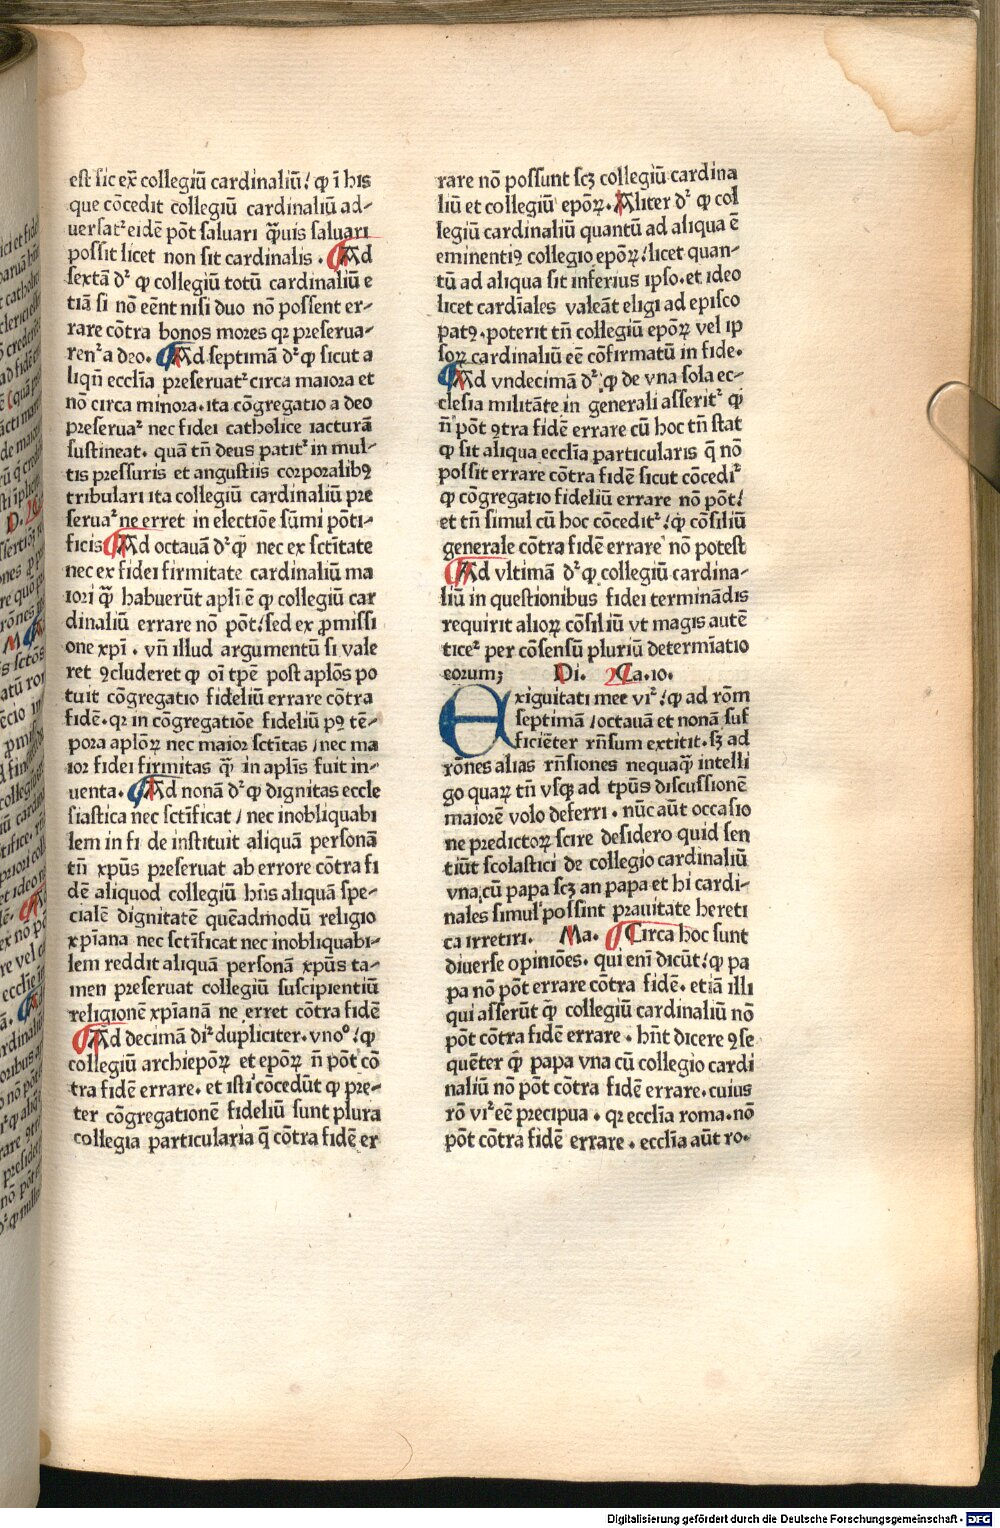 est sic ex̄ collegiū cardinaliū / ꝙ ī his
que cōcedit collegiū cardinaliū ad-
uersatᷣ eidē pōt saluari q̄uis saluari
possit licet non sit cardinalis . ¶ Ad
sextā dᷣ ꝙ collegiū totū cardinaliū e
tiā si nō eēnt nisi duo nō possent er-
rare cōtra bonos mores qꝛ preserua-
renᷣ a deo. ¶ Ad septimā dᷣ ꝙ sicut a
liqn̄ ecclīa preseruatᷣ circa maiora et
nō circa minora. ita cōgregatio a deo
preseruaᷣ nec fidei catholice iacturā
sustineat. quā tn̄ deus patitᷣ in mul-
tis pressuris et angustiis corporalibꝰ
tribulari ita collegiū cardinaliū pre
seruaᷣ ne erret in electiōe sūmi pōti-
ficis ¶ Ad octauā dᷣ ꝙ nec ex sctītate
nec ex fidei firmitate cardinaliū ma
iori q̄ habuerūt apli ē ꝙ collegiū car
dinaliū errare nō pōt / sed ex ꝓmissi
one xp̄i . vn̄ illud argumentū si vale
ret ꝯcluderet ꝙ oī tpē post aplōs po
tuit cōgregatio fideliū errare cōtra
fidē. qꝛ in cōgregatiōe fideliū pꝰ tē-
pora aploꝝ nec maior sctītas / nec ma
ior fidei firmitas q̄ in aplīs fuit in-
uenta. ¶ Ad nonā dᷣ ꝙ dignitas eccle
siastica nec sctīficat / nec inobliquabi
lem in fi de instituit aliquā personā
tn̄ xp̄us preseruat ab errore cōtra fi
dē aliquod collegiū hn̄s aliquā spe-
cialē dignitatē quēadmodū religio
xp̄iana nec sctīficat nec inobliquabi-
lem reddit aliquā personā xp̄us ta-
men preseruat collegiū suscipientiū
religionē xp̄ianā ne erret cōtra fidē
¶ Ad decimā diᷣ dupliciter . vnoº / ꝙ
collegiū archiepōꝝ et epōꝝ n̄ pōt cō
tra fidē errare . et isti cōcedūt ꝙ pre-
ter cōgregationē fideliū sunt plura
collegia particularia q̄ cōtra fidē er
rare nō possunt scꝫ collegiū cardina
liū et collegiū epōꝝ. Aliter dᷣ ꝙ col
legiū cardinaliū quantū ad aliqua ē
eminentiꝰ collegio epōꝝ / licet quan-
tū ad aliqua sit inferius ipso. et ideo
licet cardīales valeāt eligi ad episco
patꝰ. poterit tn̄ collegiū epōꝝ vel ip
soꝝ cardinaliū eē cōfirmatū in fide.
¶ Ad vndecimā dᷣ. ꝙ de vna sola ec-
clesia militāte in generali asseritᷣ ꝙ
n̄ pōt ꝯtra fidē errare cū hoc tn̄ stat
ꝙ sit aliqua ecclīa particularis q̄ nō
possit errare cōtra fidē sicut cōcediᷣ
ꝙ cōgregatio fideliū errare nō pōt /
et tn̄ simul cū hoc cōceditᷣ / ꝙ cōsiliū
generale cōtra fidē errare nō potest
¶ Ad vltimā dᷣ ꝙ collegiū cardina-
liū in questionibus fidei terminādis
requirit alioꝝ cōsiliū vt magis autē
ticeᷣ per cōsensū pluriū determīatio
eorum; Di. Ca. 10.
Exiguitati mee viᷣ / ꝙ ad rōm
septimā / octauā et nonā suf
ficiēter rn̄sum extitit. sꝫ ad
rōnes alias rn̄siones nequaq̄ intelli
go quaꝝ tn̄ vsqꝫ ad tp̄us discussionē
maiorē volo deferri . nūc aūt occasio
ne predictoꝝ scire desidero quid sen
tiūt scolastici de collegio cardinaliū
vna cū papa scꝫ an papa et hi cardi-
nales simul possint prauitate hereti
ca irretiri. Ma. ¶ Circa hoc sunt
diuerse opiniōes. qui enī dicūt / ꝙ pa
pa nō pōt errare cōtra fidē. etiā illi
qui asserūt ꝙ collegiū cardinaliū nō
pōt cōtra fidē errare . hn̄t dicere ꝯse
quēter ꝙ papa vna cū collegio cardi
naliū nō pōt cōtra fidē errare. cuius
rō viᷣ eē precipua . qꝛ ecclīa roma. nō
pōt cōtra fidē errare . ecclīa aūt ro.
Digitalisierung gefördert durch die Deutsche Forschungsgemeinschaft - DFG